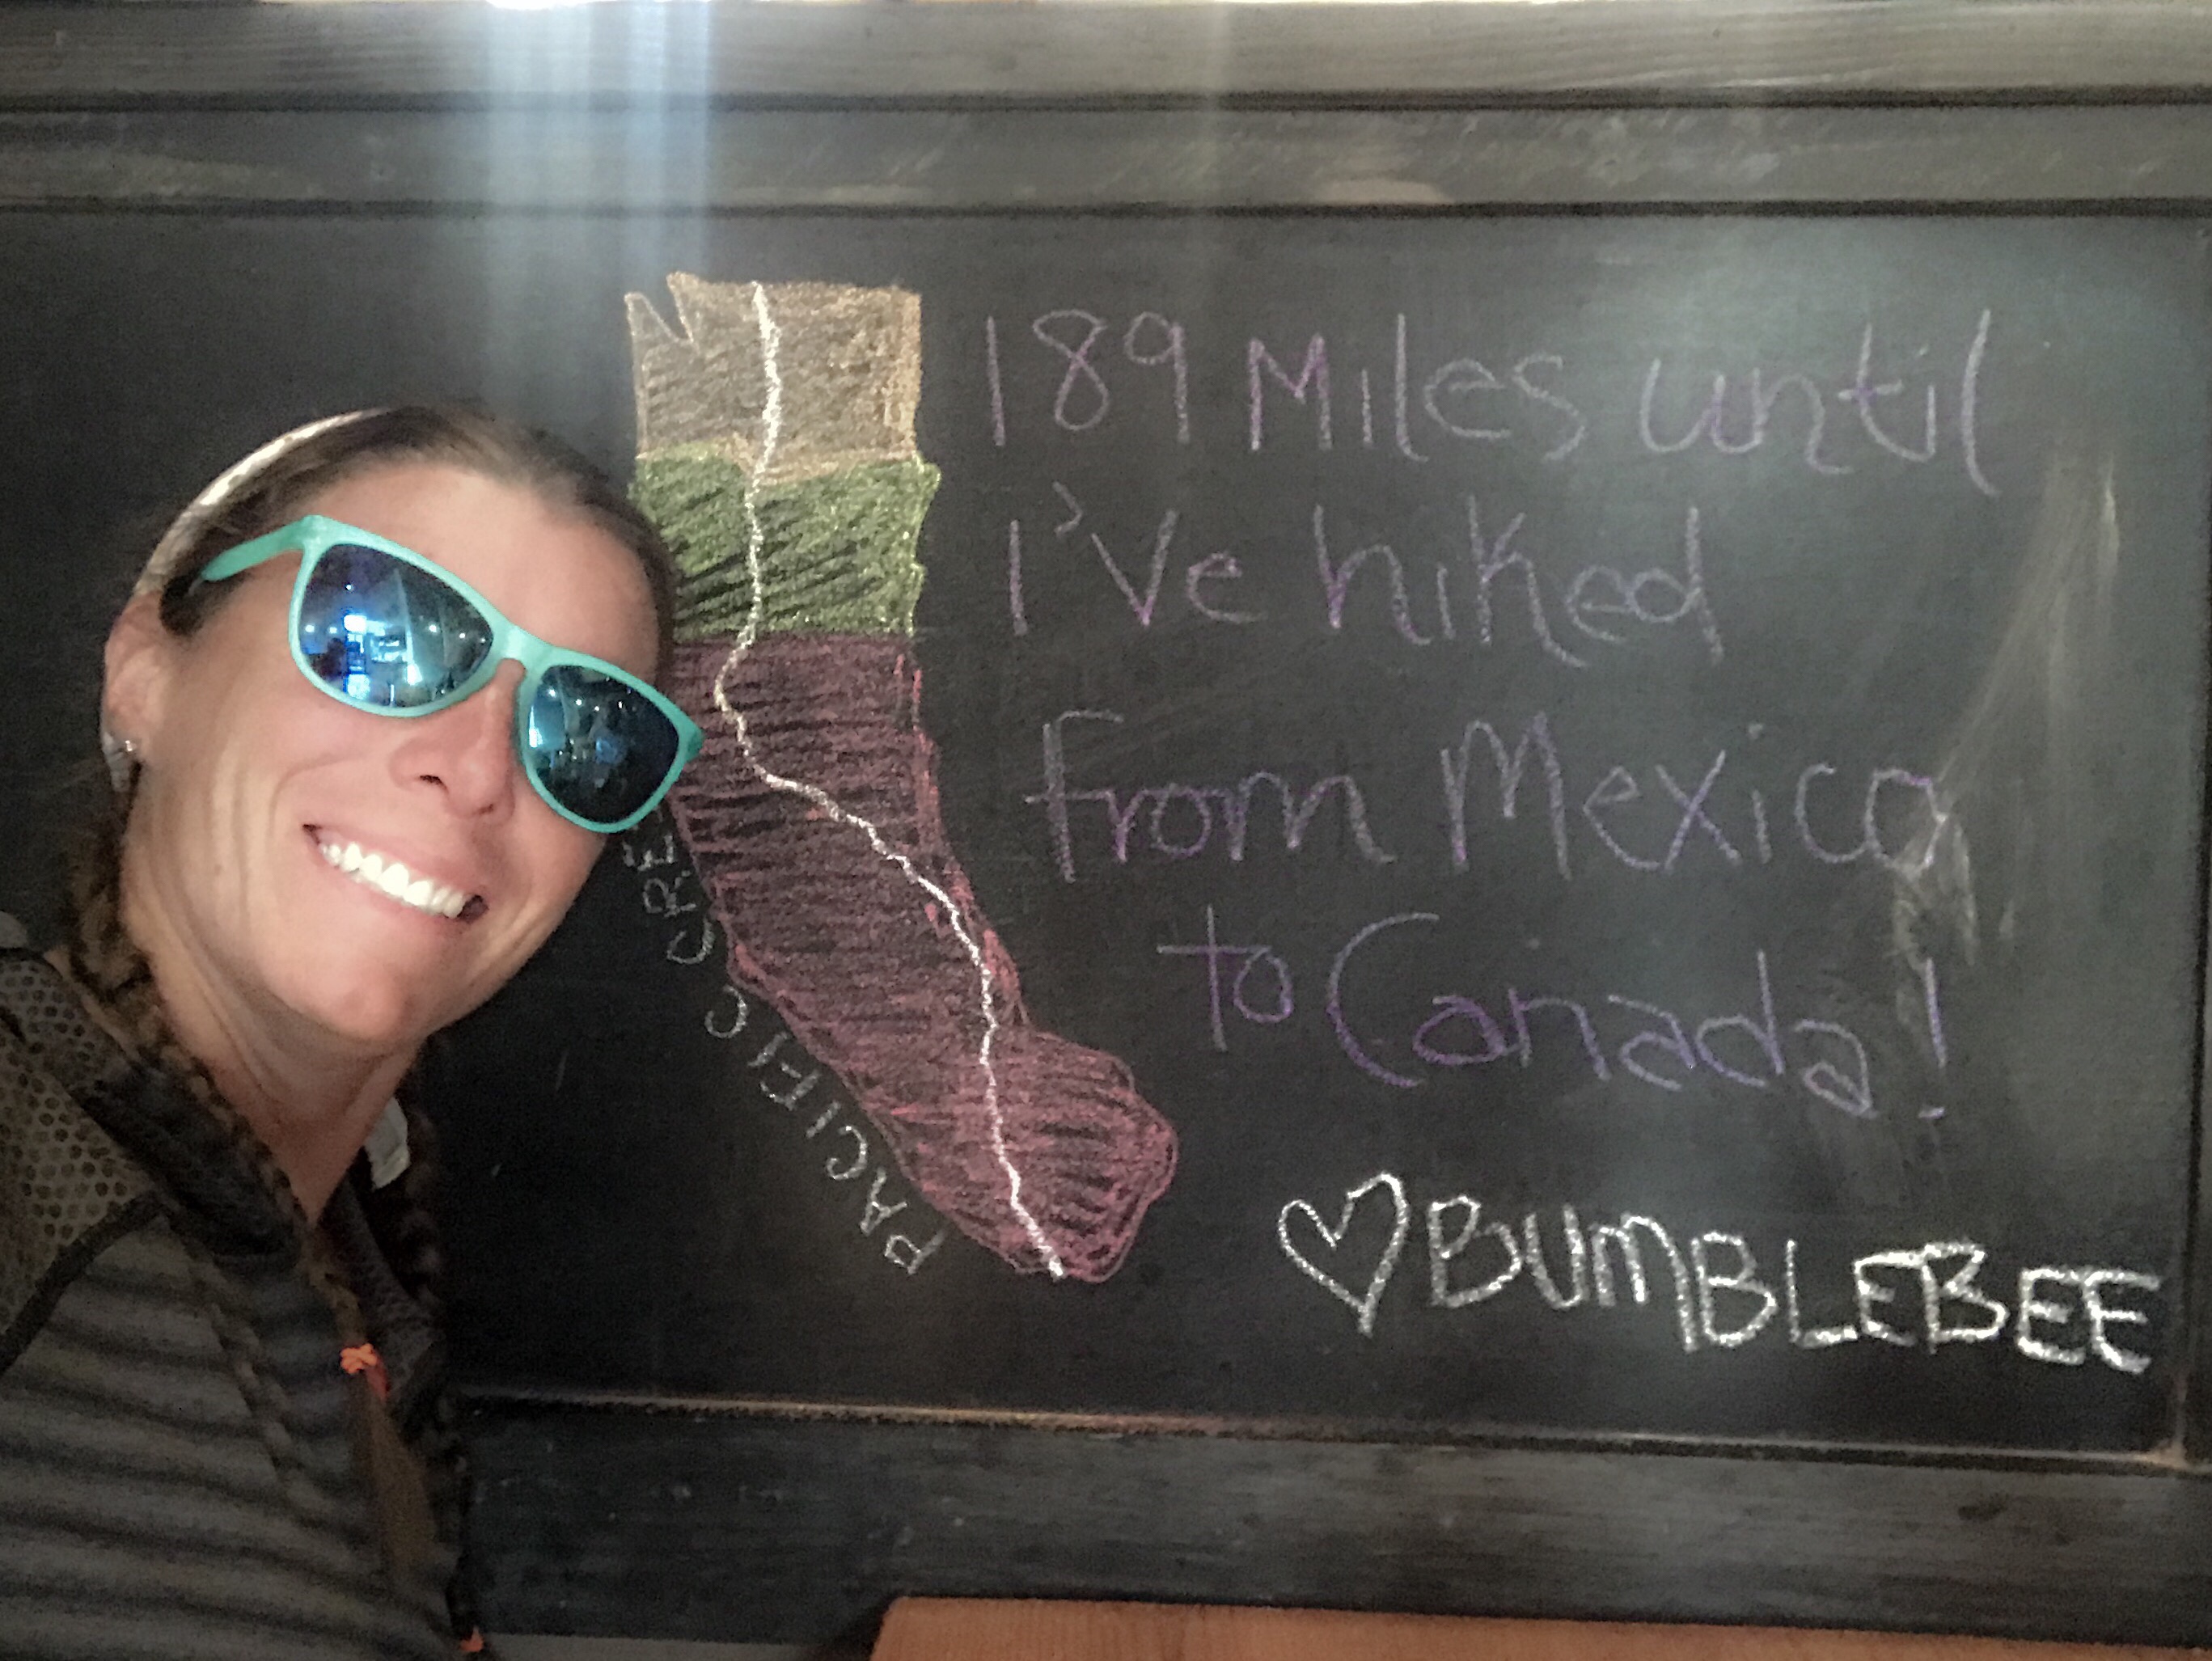 189 Miles until
I've hiked
From Mexico
to Canada!
♡BUMBLEBEE
PACIFIC CRE